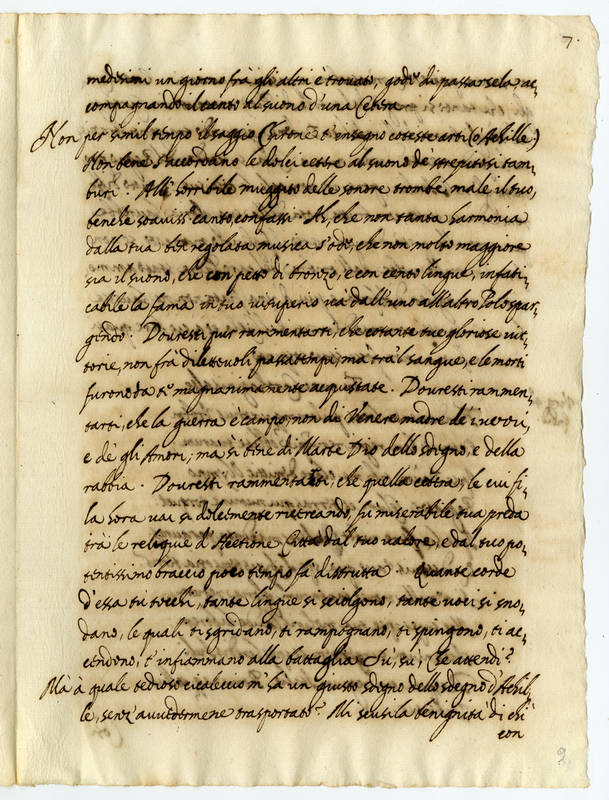 7.
medesimi un giorno frà gli altri è trouato, god.º di passarsela, ac-
compagnando il canto al suono d'una Cetera.
Non per simil tempo il saggio Chirone t'insegnò coteste arti (ò Achille)
Non bene s'accordano le dolci cetre al suono de' strepitosi tam-
buri. All'horribile muggito delle sonore trombe, male il tuo,
benche soauiss.º canto, confassi. Ah, che non tanta harmonia
dalla tua ben regolata musica s'ode, che non molto maggiore
sia il suono, che con petto di bronzo, e con cento lingue, infati-
cabile la fama in tuo vituperio và dall'uno all'altro Polo spar-
gendo. Douresti pur rammentarti, che cotante tue gloriose vit-
torie, non frà diletteuoli passatempi, mà trà 'l sangue, e le morti
furono da te magnanimamente acquistate. Douresti rammen-
tarti, che la guerra è campo, non di Venere madre de i vezzi,
e de gli Amori; ma si bene di Marte Dio dello sdegno, e della
rabbia. Douresti rammentarti, che quella cetra, le cui fi-
la hora vai si dolcemente ricercando, fu miserabile tua preda
trà le reliquie d'Aetione Città dal tuo valore, e dal tuo po-
tentissimo braccio poco tempo fà distrutta. Quante corde
d'essa tù tocchi, tante lingue si sciolgono, tante uoci si sno-
dano, le quali ti sgridano, ti rampognano, ti spingono, ti ac-
cendono, t'infiammano alla battaglia. Sù, sù, Che attendi?
Mà à quale tedioso cicaleccio m'hà un giusto sdegno dello sdegno d'Achil-
le, senz'auuedermene trasportato? Mi scusi la benignità di chi
con
9